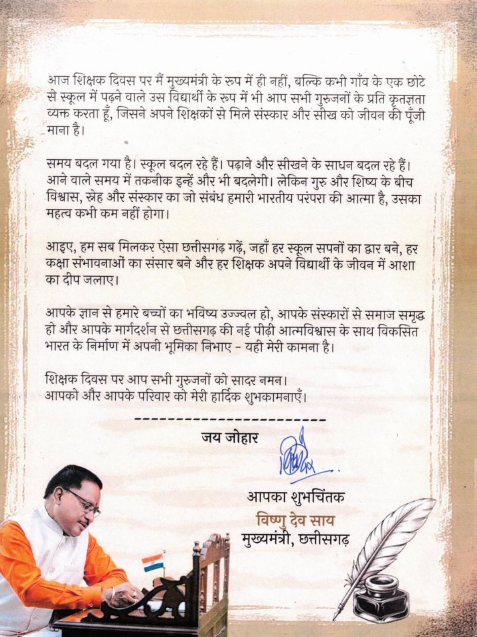 आज शिक्षक दिवस पर मैं मुख्यमंत्री के रूप में ही नहीं, बल्कि कभी गाँव के एक छोटे
से स्कूल में पढ़ने वाले उस विद्यार्थी के रूप में भी आप सभी गुरुजनों के प्रति कृतज्ञता
व्यक्त करता हूँ, जिसने अपने शिक्षकों से मिले संस्कार और सीख को जीवन की पूँजी
माना है।
समय बदल गया है। स्कूल बदल रहे हैं। पढ़ाने और सीखने के साधन बदल रहे हैं।
आने वाले समय में तकनीक इन्हें और भी बदलेगी। लेकिन गुरु और शिष्य के बीच
विश्वास, स्नेह और संस्कार का जो संबंध हमारी भारतीय परंपरा की आत्मा है, उसका
महत्व कभी कम नहीं होगा।
आइए, हम सब मिलकर ऐसा छत्तीसगढ़ गढ़ें, जहाँ हर स्कूल सपनों का द्वार बने, हर
कक्षा संभावनाओं का संसार बने और हर शिक्षक अपने विद्यार्थी के जीवन में आशा
का दीप जलाए।
आपके ज्ञान से हमारे बच्चों का भविष्य उज्ज्वल हो, आपके संस्कारों से समाज समृद्ध
हो और आपके मार्गदर्शन से छत्तीसगढ़ की नई पीढ़ी आत्मविश्वास के साथ विकसित
भारत के निर्माण में अपनी भूमिका निभाए - यही मेरी कामना है।
शिक्षक दिवस पर आप सभी गुरुजनों को सादर नमन।
आपको और आपके परिवार को मेरी हार्दिक शुभकामनाएँ।
जय जोहार
आपका शुभचिंतक
विष्णु देव साय
मुख्यमंत्री, छत्तीसगढ़